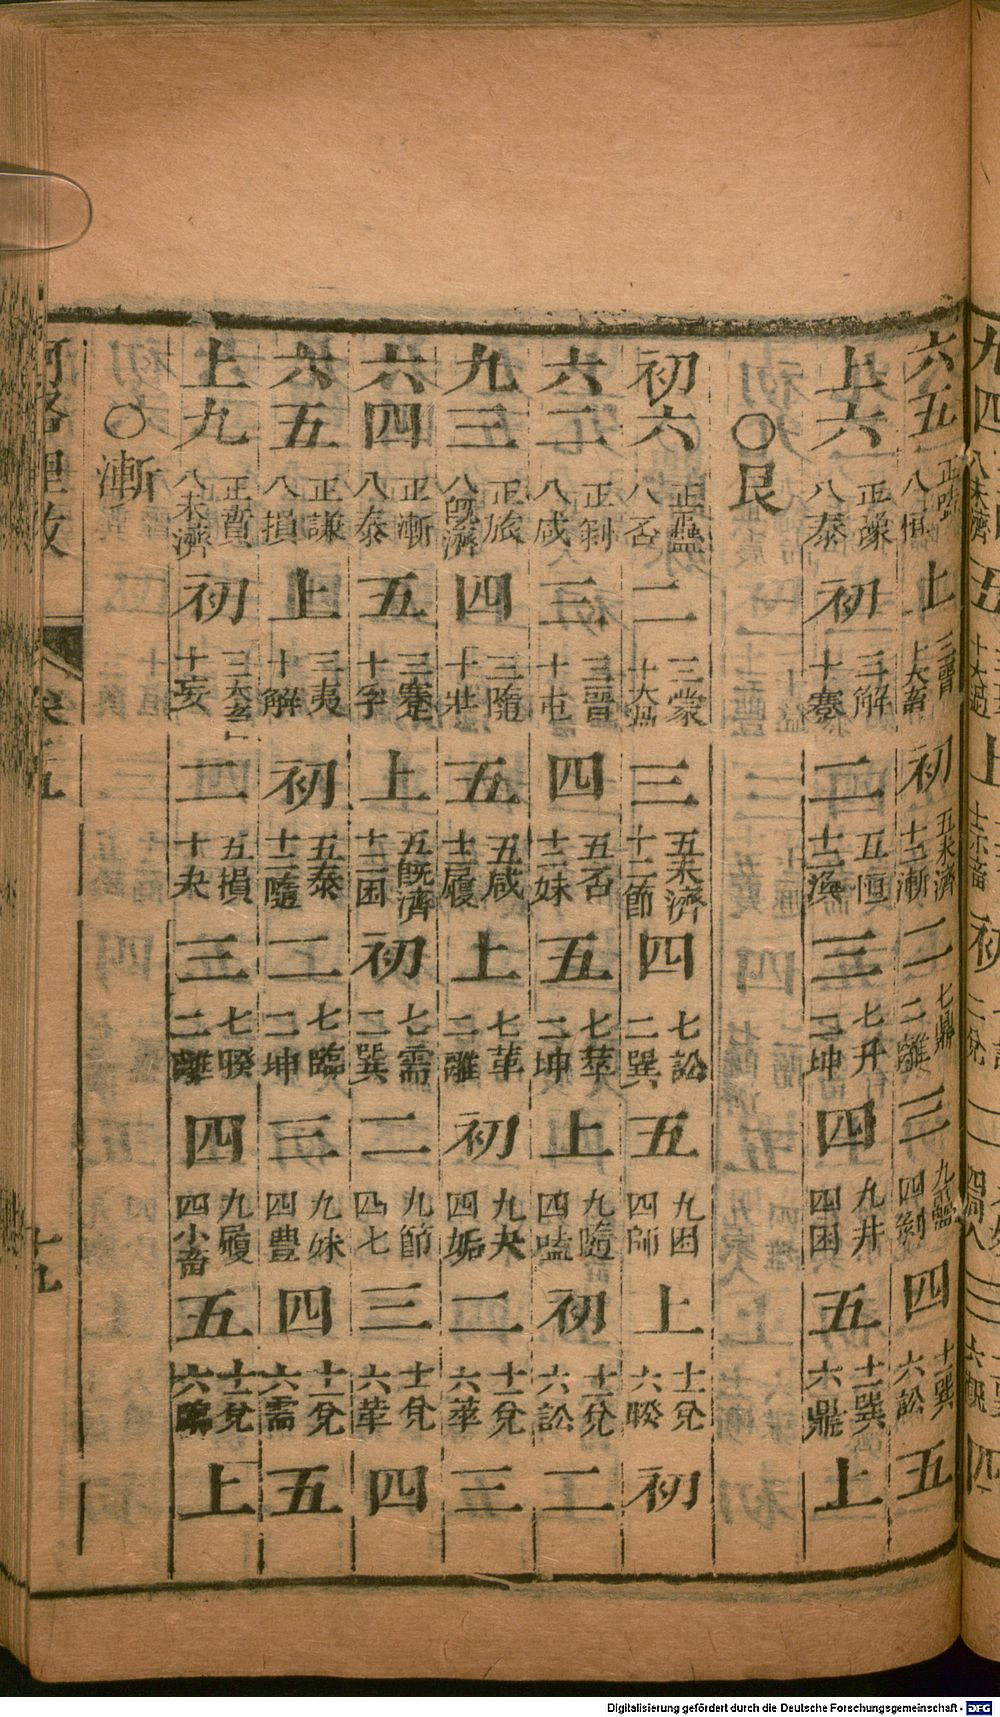 九四 八未濟 五 上 初 二兌 四同人 三 六觀 四
六五 正噬 八恒 上 三晉 十大畜 初 五未濟 十二漸 二 七鼎 二離 三 九蠱 四剝 四 十一巽 六訟 五
上六 正豫 八泰 初 三解 十蹇 二 五恒 十二渙 三 七升 二坤 四 九井 四困 五 十一巽 六鼎 上
○艮
初六 正蠱 八否 二 三蒙 三 五未濟 十二節 四 七訟 二巽 五 九困 四師 上 十一兌 六睽 初
六二 正剝 八咸 三 三晉 十屯 四 五否 十二妹 五 七萃 二坤 上 九隨 四嗑 初 十一兌 六訟 二
九三 正旅 八既濟 四 三隨 十壯 五 五咸 十二履 上 七革 二離 初 九夬 四姤 二 十一兌 六萃 三
六四 正漸 八泰 五 三蹇 十孚 上 五既濟 十二困 初 七需 二巽 二 九節 四七 三 十一兌 六革 四
六五 正謙 八損 上 三夷 十解 初 五泰 十二隨 二 七臨 二坤 三 九妹 四豊 四 十一兌 六需 五
上九 正賁 八未濟 初 三大畜 十妄 二 五損 十夬 三 七睽 二離 四 九履 四小畜 五 十一兌 六臨 上
○漸
河洛理數 卷五 十九
Digitalisierung gefördert durch die Deutsche Forschungsgemeinschaft - DFG